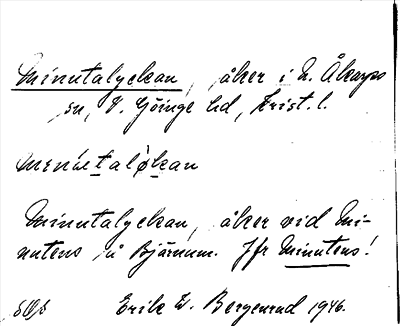 Minutalyckan, åker i N. Åkarps
sn, V. Göinge hd, Krist. l.
Minutalyckan, åker vid Mi-
nutens å Bjärnum. Jfr Minutens!
Erik W. Bergenrud 1946.